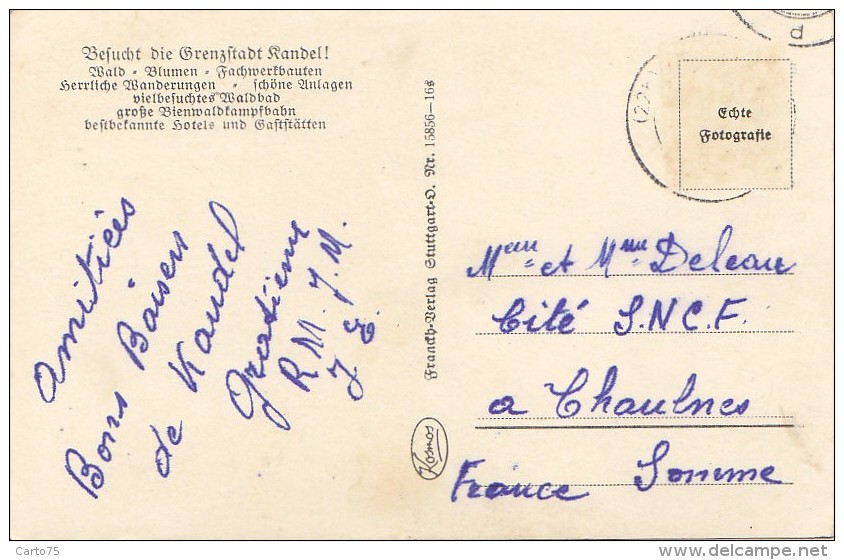 Besucht die Grenzstadt Kandel!
Wald - Blumen - Fachwerkbauten
Herrliche Wanderungen - schöne Anlagen
vielbesuchtes Waldbad
große Bienwaldkampfbahn
bestbekannte Hotels und Gaststätten
Amitiées
Bons Baisers
de Kandel
Gratienne
R M. J. M.
J E.
Franckh-Verlag Stuttgart-O. Nr. 15856-16s
Kosmos
d
(22
Echte
Fotografie
et Mme Deleau
Cité S.N.C.F.
a Chaulnes
France Somme
Carto75
delcampe.net